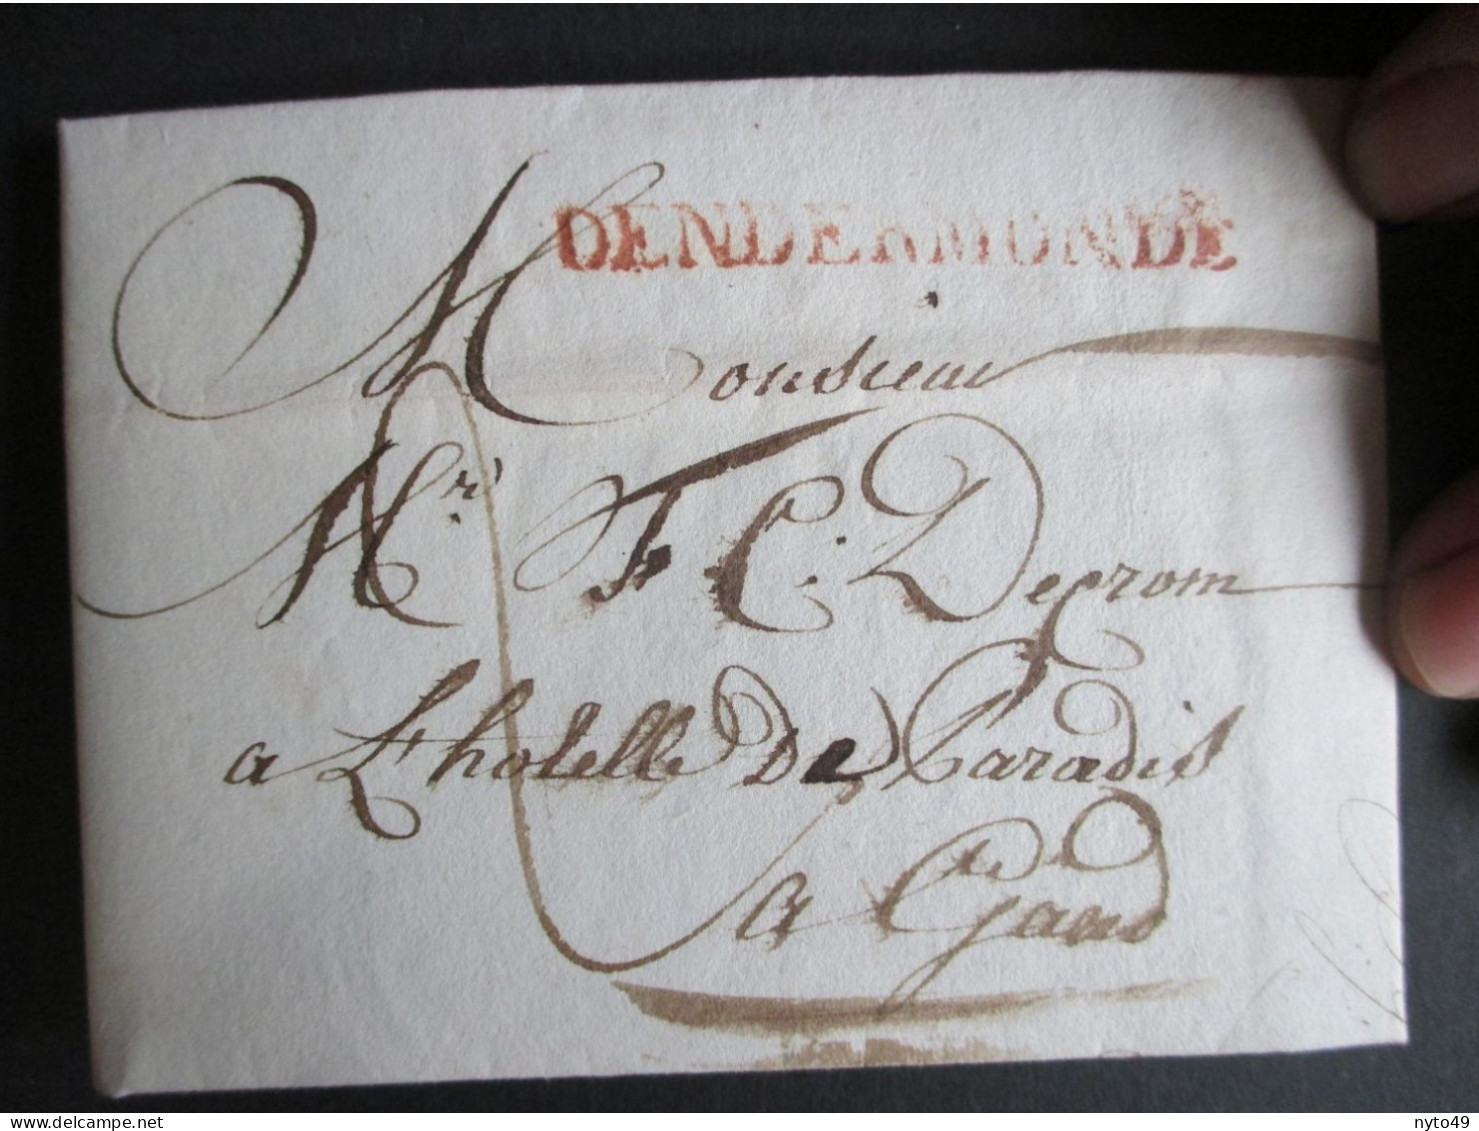 DENDERMONDE
Monsieur
Mr. F C. Degrom
a L'hotelle De Paradis
a Gand
delcampe.net
nyto49